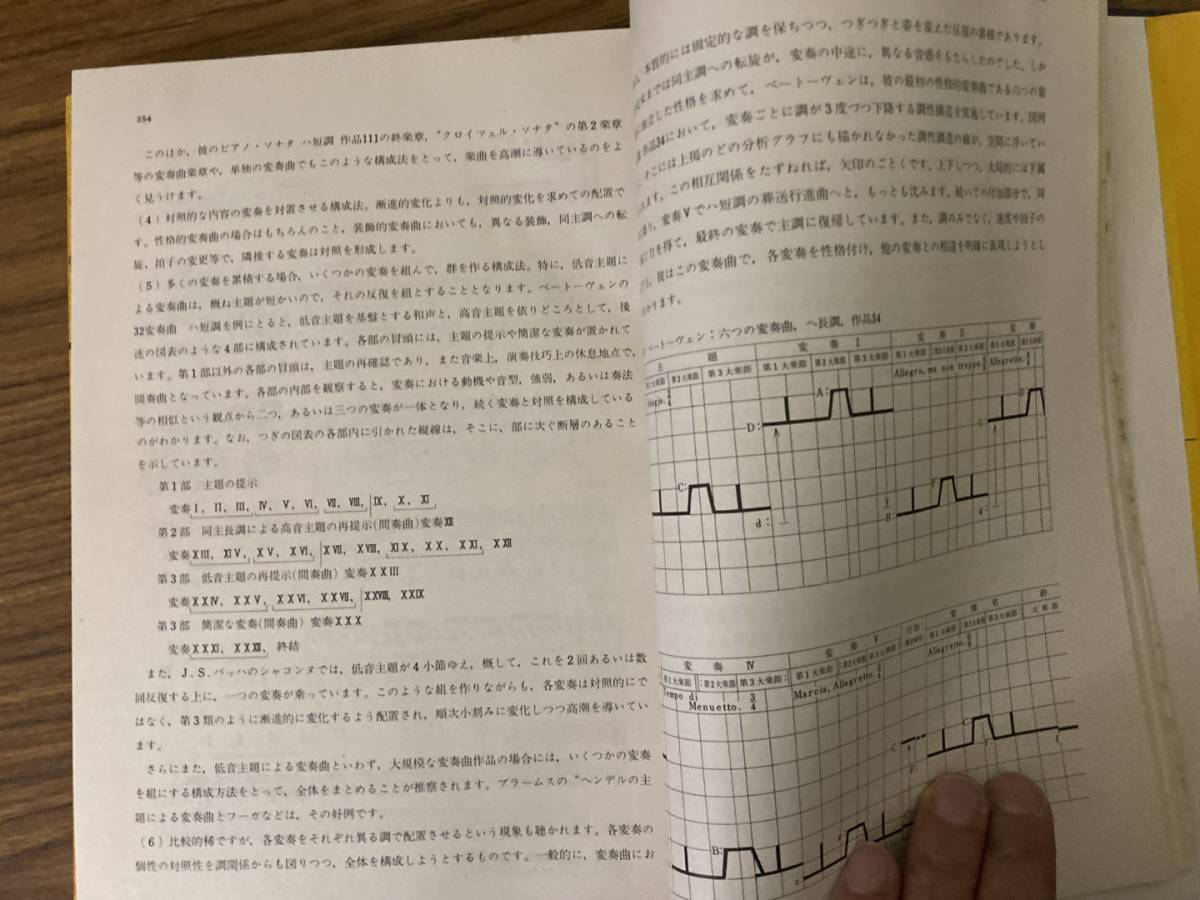 354
このほか，彼のピアノ・ソナタ ハ短調 作品111の終楽章，“クロイツェル・ソナタ”の第2楽章
等の変奏曲楽章や，単独の変奏曲でもこのような構成法をとって，楽曲を高潮に導いているのをよ
く見うけます。
（4）対照的な内容の変奏を対置させる構成法。漸進的変化よりも，対照的変化を求めての配置で
す。性格的変奏曲の場合はもちろんのこと，装飾的変奏曲においても，異なる装飾，同主調への転
旋，拍子の変更等で，隣接する変奏は対照を形成します。
（5）多くの変奏を累積する場合，いくつかの変奏を組んで，群を作る構成法。特に，低音主題に
よる変奏曲は，概ね主題が短かいので，それの反復を組とすることとなります。ベートーヴェンの
32変奏曲 ハ短調を例にとると，低音主題を基盤とする和声と，高音主題を依りどころとして，後
述の図表のような4部に構成されています。各部の冒頭には，主題の提示や簡潔な変奏が置かれて
います。第1部以外の各部の冒頭は，主題の再確認であり，また音楽上，演奏技巧上の休息地点で，
間奏曲となっています。各部の内部を観察すると，変奏における動機や音型，強弱，あるいは奏法
等の相似という観点から二つ，あるいは三つの変奏が一体となり，続く変奏と対照を構成している
のがわかります。なお，つぎの図表の各部内に引かれた縦線は，そこに，部に次ぐ断層のあること
を示しています。
第1部 主題の提示
変奏Ⅰ，Ⅱ，Ⅲ，Ⅳ，Ⅴ，Ⅵ，Ⅶ，Ⅷ，Ⅸ，Ⅹ，Ⅺ
第2部 同主長調による高音主題の再提示（間奏曲）変奏Ⅻ
変奏XIII，XIV，XV，XVI，XVII，XVIII，XIX，XX，XXI，XXII
第3部 低音主題の再提示（間奏曲）変奏XXIII
変奏XXIV，XXV，XXVI，XXVII，XXVIII，XXIX
第3部 簡潔な変奏（間奏曲）変奏XXX
変奏XXXI，XXXII，終結
また，J.S.バッハのシャコンヌでは，低音主題が4小節ゆえ，概して，これを2回あるいは数
回反復する上に，一つの変奏が乗っています。このような組を作りながらも，各変奏は対照的にで
はなく，第3類のように漸進的に変化するよう配置され，順次小刻みに変化しつつ高潮を導いてい
ます。
さらにまた，低音主題による変奏曲といわず，大規模な変奏曲作品の場合には，いくつかの変奏
を組にする構成方法をとって，全体をまとめることが推察されます。ブラームスの“ヘンデルの主
題による変奏曲とフーガなどは，その好例です。
（6）比較的稀ですが，各変奏をそれぞれ異る調で配置させるという現象も聴かれます。各変奏の
個性の対照性を調関係からも図りつつ，全体を構成しようとするものです。一般的に，変奏曲にお
本質的には固定的な調を保ちつつ，つぎつぎと姿を変えた反復の累積であります。
までは同主調への転旋が，変奏の中途に，異なる音感をもたらしたのでした。しか
した性格を求めて，ベートーヴェンは，彼の最初の性格的変奏曲である六つの変
作品34において，変奏ごとに調が3度づつ下降する調性構造を実施しています。図例
そこには上掲のどの分析グラフにも描かれなかった調性構造の線が，空間に浮いてい
ます。この相互関係をたずねれば，矢印のごとくです。上下しつつ，大局的には下属
変奏Ⅴでハ短調の葬送行進曲へと，もっとも沈みます。続いての付加部分で，同
力を得て，最終の変奏で主調に復帰しています。また，調のみでなく，速度や拍子の
彼はこの変奏曲で，各変奏を性格付け，他の変奏との相違を明確に表現しようとし
かります。
ベートーヴェン；六つの変奏曲，ヘ長調，作品34
主 題 変 奏 Ⅰ 変 奏 Ⅱ 変 奏
第2大楽節 第3大楽節 第1大楽節 第2大楽節 第3大楽節 第1大楽節 第2大楽節 第3大楽節 第1大楽節
Allegro, ma non troppo. Allegretto.
A:
D:
D
G
C:
d:
B:
g:
変 奏 Ⅳ 変 奏 Ⅴ 付加 変 奏 Ⅵ 終
第1大楽節 第2大楽節 第3大楽節 第1大楽節 第2大楽節 第3大楽節 第1大楽節 第2大楽節 第3大楽節 大楽節
Tempo di Menuetto. 3/4 Marcia, Allegretto. Allegretto.
C
F
F:
B:
c